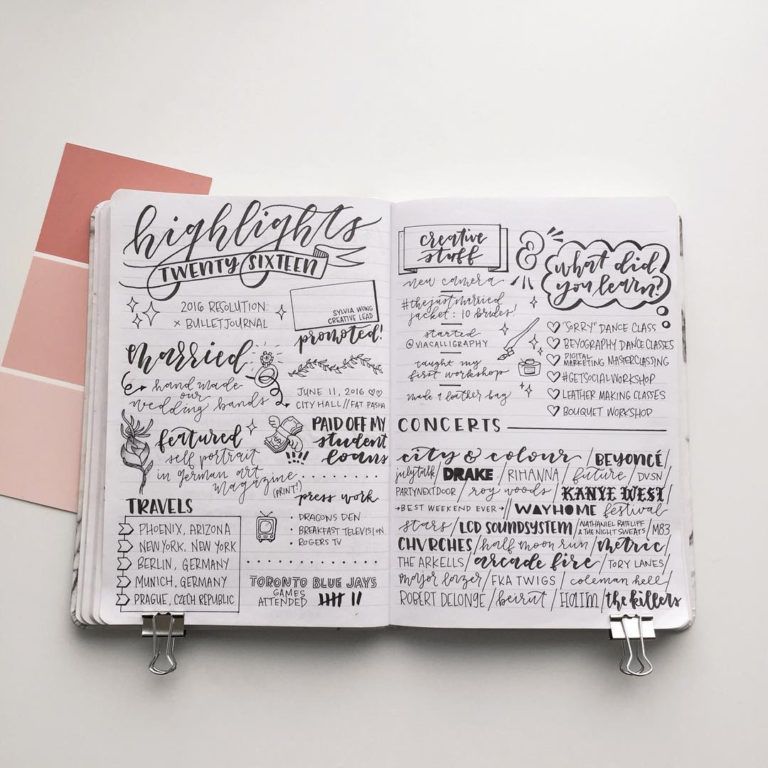 highlights
TWENTY SIXTEEN
2016 RESOLUTION
× BULLET JOURNAL
SYLVIA WONG
CREATIVE LEAD
promoted!
married
hand made
our
wedding bands
JUNE 11, 2016
CITY HALL // FAT PASHA
featured
self portrait
in german art
magazine (PRINT!)
PAID OFF MY
student
loans
press work
• DRAGONS DEN
• BREAKFAST TELEVISION
• ROGERS TV
TRAVELS
PHOENIX, ARIZONA
NEW YORK, NEW YORK
BERLIN, GERMANY
MUNICH, GERMANY
PRAGUE, CZECH REPUBLIC
TORONTO BLUE JAYS
GAMES
ATTENDED
creative
stuff
&
what did
you learn?
new camera
#thejustmarried
jacket : 10 brides!
started
@VIACALLIGRAPHY
taught my
first workshop
made a leather bag
"SORRY" DANCE CLASS
BEYOGRAPHY DANCE CLASSES
DIGITAL
MARKETING MASTERCLASSING
#GETSOCIAL WORKSHOP
LEATHER MAKING CLASSES
BOUQUET WORKSHOP
CONCERTS
city & colour / BEYONCÉ
july talk / DRAKE / RIHANNA / future / DVSN
PARTYNEXTDOOR / roy woods / KANYE WEST
→ BEST WEEKEND EVER → / WAYHOME festival
stars / LCD SOUNDSYSTEM / NATHANIEL RATELIFF & THE NIGHT SWEATS / M83
CHVRCHES / half moon run / metric /
THE ARKELLS / arcade fire / TORY LANES /
major lazer / FKA TWIGS / coleman hell /
ROBERT DELONGE / beirut / HAIM / the killers